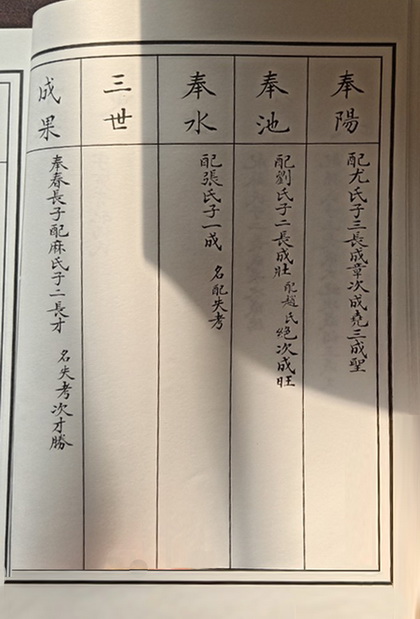 奉陽
配尤氏子三長成章次成堯三成聖
奉池
配劉氏子二長成壯配趙氏絕次成旺
奉水
配張氏子一成 名配失考
三世
成果
奉春長子配麻氏子二長才 名失考次才勝